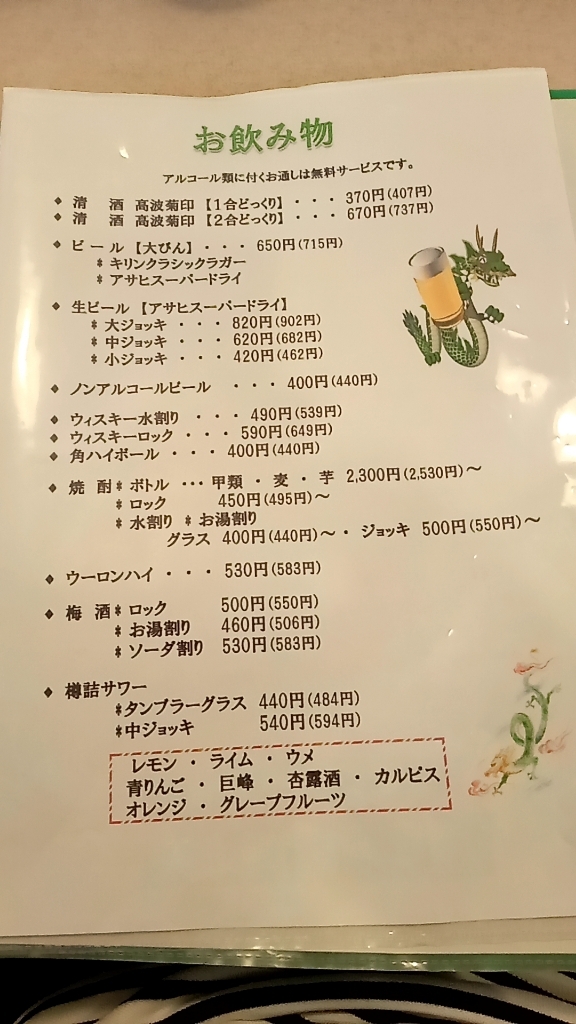 お飲み物
アルコール類に付くお通しは無料サービスです。
◆ 清 酒 高波菊印【1合どっくり】・・・ 370円(407円)
◆ 清 酒 高波菊印【2合どっくり】・・・ 670円(737円)
◆ ビール【大びん】・・・ 650円(715円)
* キリンクラシックラガー
* アサヒスーパードライ
◆ 生ビール【アサヒスーパードライ】
* 大ジョッキ ・・・ 820円(902円)
* 中ジョッキ ・・・ 620円(682円)
* 小ジョッキ ・・・ 420円(462円)
◆ ノンアルコールビール ・・・ 400円(440円)
◆ ウィスキー水割り ・・・ 490円(539円)
◆ ウィスキーロック ・・・ 590円(649円)
◆ 角ハイボール ・・・ 400円(440円)
◆ 焼 酎 * ボトル ・・・ 甲類 ・ 麦 ・ 芋 2,300円(2,530円)～
* ロック 450円(495円)～
* 水割り * お湯割り
グラス 400円(440円)～・ ジョッキ 500円(550円)～
◆ ウーロンハイ ・・・ 530円(583円)
◆ 梅 酒 * ロック 500円(550円)
* お湯割り 460円(506円)
* ソーダ割り 530円(583円)
◆ 樽詰サワー
*タンブラーグラス 440円(484円)
*中ジョッキ 540円(594円)
レモン ・ ライム ・ ウメ
青りんご ・ 巨峰 ・ 杏露酒 ・ カルピス
オレンジ ・ グレープフルーツ